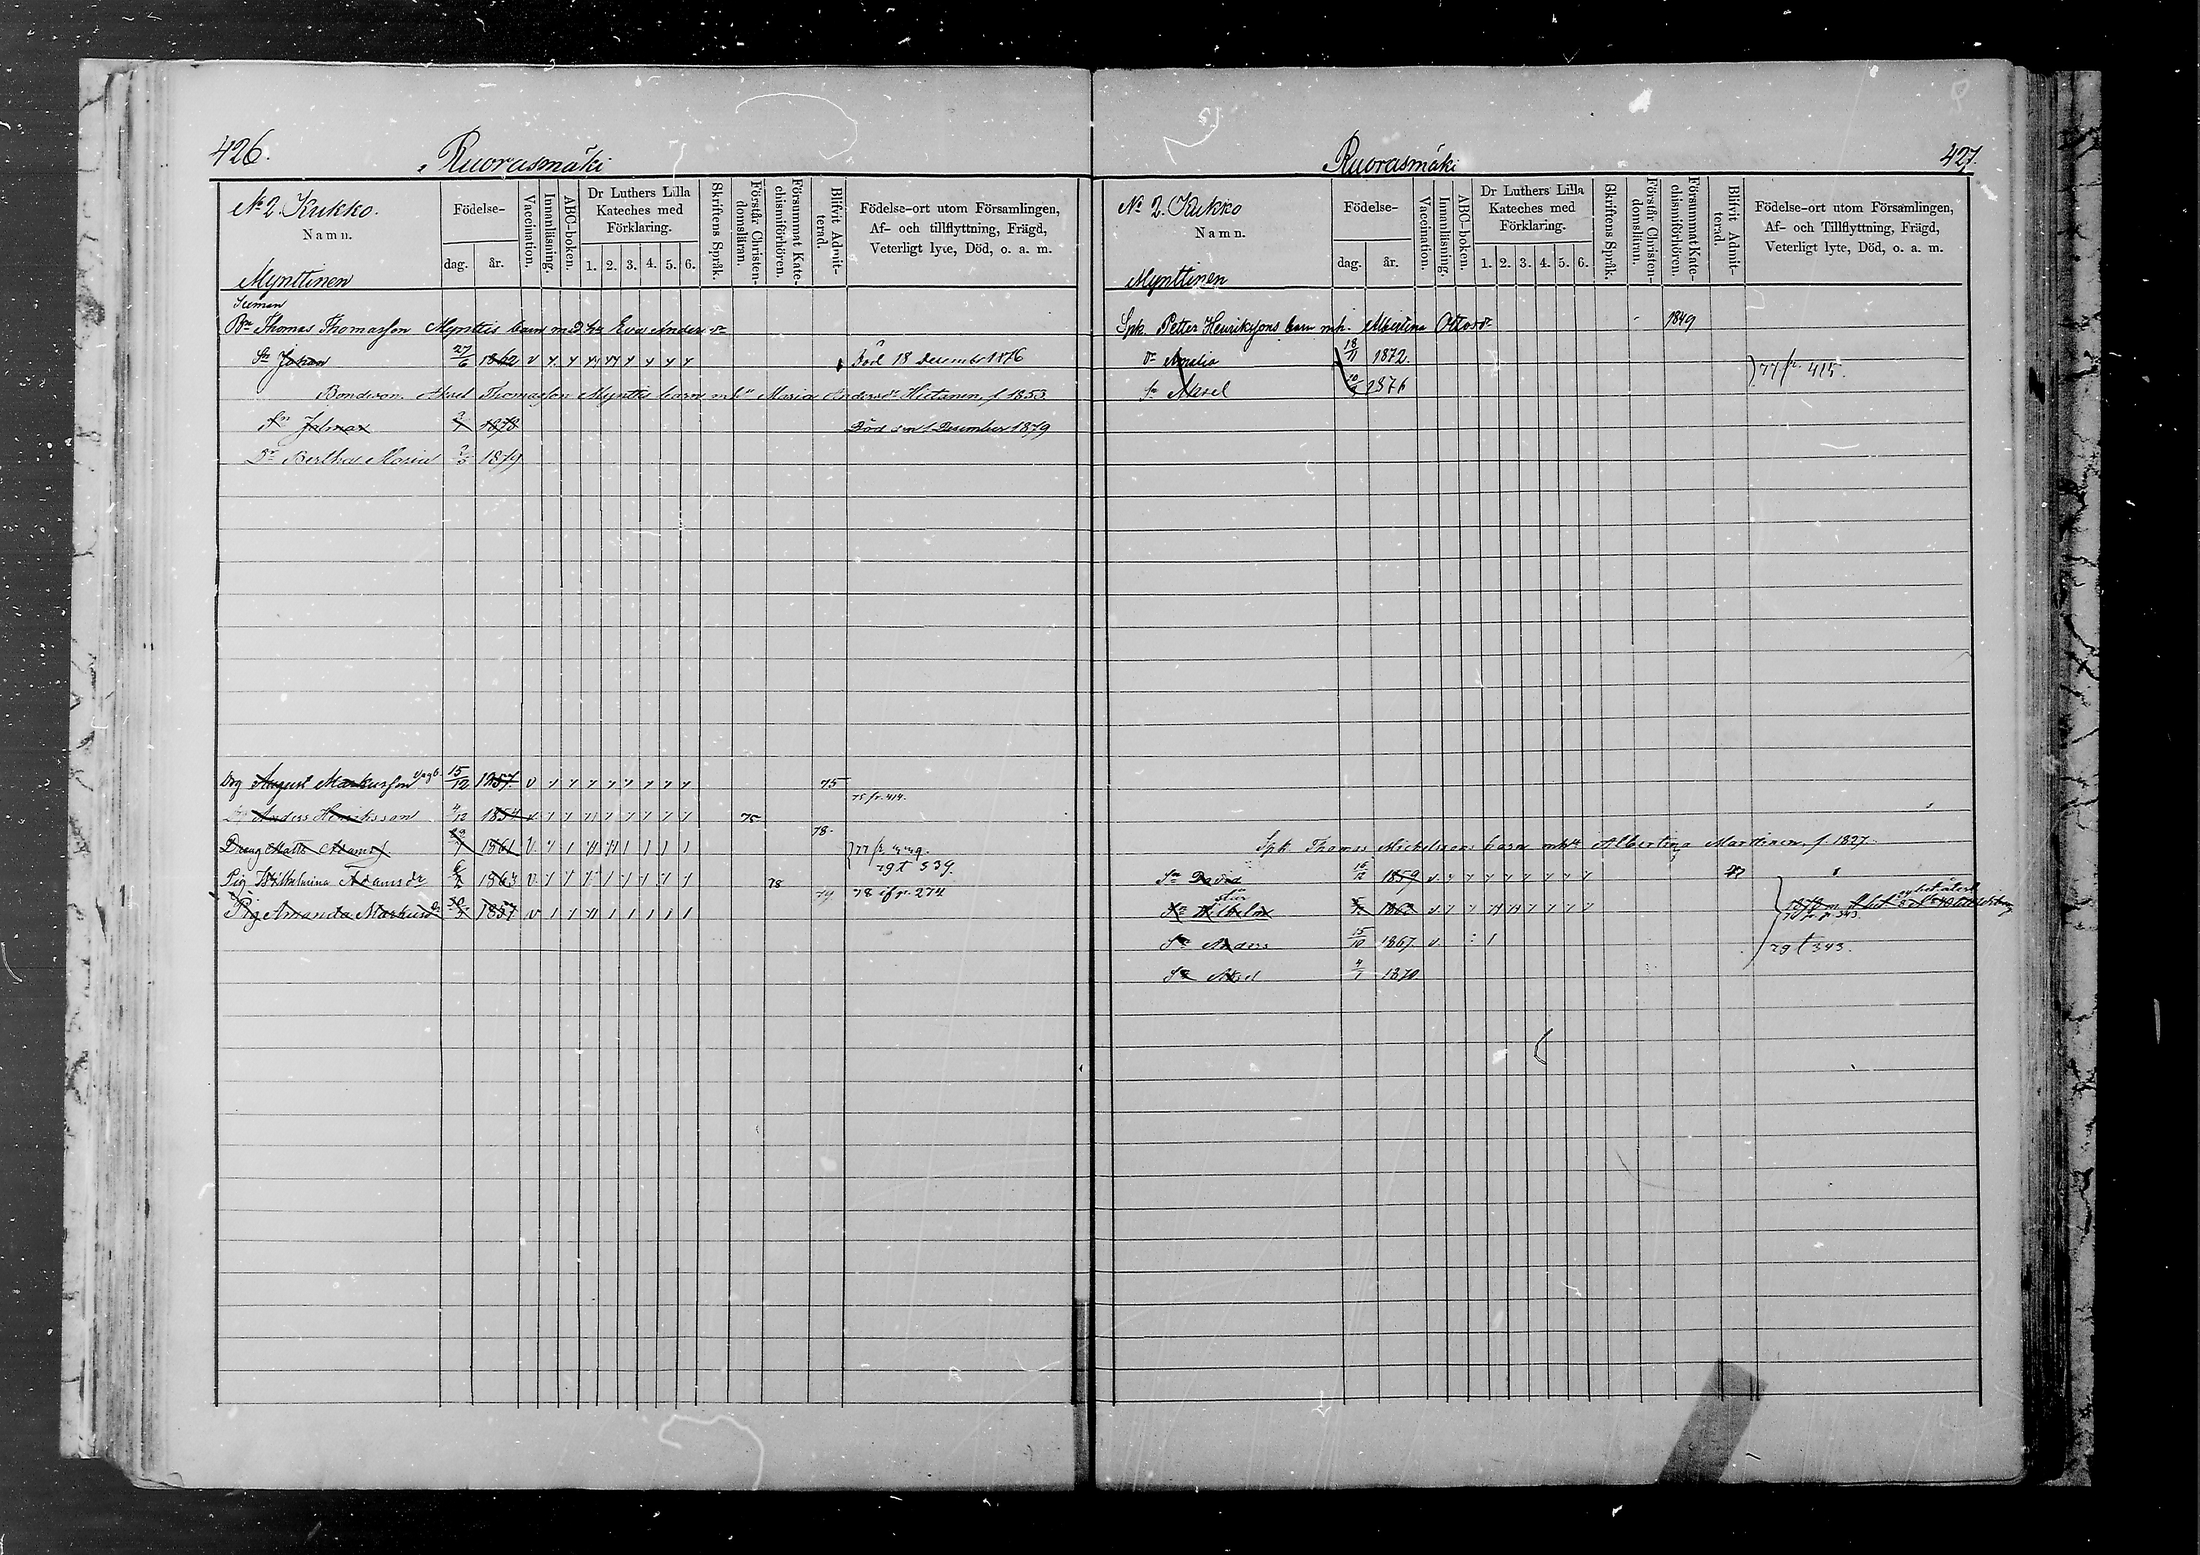 426.
Ruorasmäki
No 2 Kukko.
Namn.
Födelse-
dag.
år.
Vaccination.
Innanläsning.
ABC-boken.
Dr Luthers Lilla
Kateches med
Förklaring.
1. 2. 3. 4. 5. 6.
Skriftens Språk.
Förstår Christen-
domsläran.
Försummat Kate-
chismiförhören.
Blifvit Admit-
terad.
Födelse-ort utom Församlingen,
Af- och tillflyttning, Frägd,
Veterligt lyte, Död, o. a. m.
Mynttinen
Thomas Thomasson Mynttis barn m 2 h Eva Anders dr
Sn Johan 27/6 1862 v Död 18 December 1876
Bondeson. Aksel Thomasson Mynttis barn mh Maria Andersdr Hietanen, f. 1853
Sn Jalmax 1878 Död den 1 December 1879
Dr Bertha Maria 1879
Drg August Markusson 15/12 1857. v 75
75 fr. 414.
Anders Henriksson 4/12 1854 v 75
78.
Dreng Matts Adamsf. 1861 v 77 fr
79 t 339.
Pig Wilhelmina Adamsdr 1863 v 78 79 78 if fr. 274
Pig Amanda Markusdr 1857 v
Ruorasmäki
427.
No 2. Kukko
Namn.
Födelse-
dag.
år.
Vaccination.
Innanläsning.
ABC-boken.
Dr Luthers Lilla
Kateches med
Förklaring.
1. 2. 3. 4. 5. 6.
Skriftens Språk.
Förstår Christen-
domsläran.
Försummat Kate-
chismiförhören.
Blifvit Admit-
terad.
Födelse-ort utom Församlingen,
Af- och Tillflyttning, Frägd,
Veterligt lyte, Död, o. a. m.
Mynttinen
Spk. Petter Henrikssons barn mh. Albertina Ottosdr 1849
dr Amalia 18/11 1872. 77 fr. 415.
Sn Aksel 1876
Spk Thomas Mickelssons barn mh Albertina Marttinen, f. 1827.
Sn David 16/12 1859 v
Sn Wilhelm v
Sn Anders 15/10 1867 v. 79 t 343.
Sn Aksel 4/1 1870.